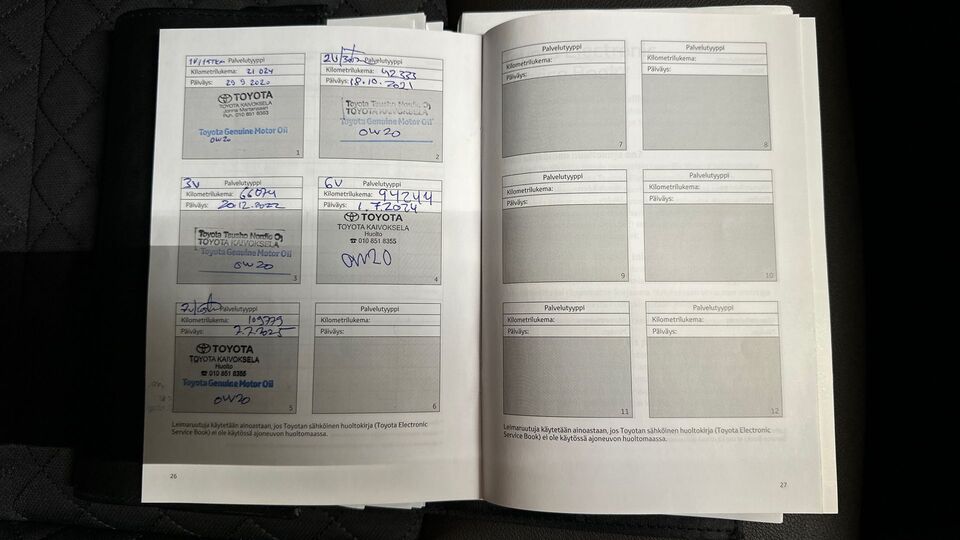 Palvelutyyppi
Kilometrilukema: 21 024
Päiväys: 29 9 2020
TOYOTA
TOYOTA KAIVOKSELA
Puh. 010 851 8353
Toyota Genuine Motor Oil
0W20
1
2V/ Palvelutyyppi
Kilometrilukema: 42333
Päiväys: 18.10.2021
Toyota Tsusho Nordic Oj
TOYOTA KAIVOKSELA
Toyota Genuine Motor Oil
0W20
2
3V Palvelutyyppi
Kilometrilukema: 66074
Päiväys: 20.12.2022
Toyota Tsusho Nordic Oj
TOYOTA KAIVOKSELA
Toyota Genuine Motor Oil
0W20
3
6V Palvelutyyppi
Kilometrilukema: 94244
Päiväys: 1.7.2024
TOYOTA
TOYOTA KAIVOKSELA
Huolto
☎ 010 851 8355
0W20
4
Palvelutyyppi
Kilometrilukema: 109779
Päiväys: 7.7.2025
TOYOTA
TOYOTA KAIVOKSELA
Huolto
☎ 010 851 8355
Toyota Genuine Motor Oil
0W20
5
Palvelutyyppi
Kilometrilukema:
Päiväys:
6
Leimaruutuja käytetään ainoastaan, jos Toyotan sähköinen huoltokirja (Toyota Electronic
Service Book) ei ole käytössä ajoneuvon huoltomaassa.
26
Palvelutyyppi
Kilometrilukema:
Päiväys:
7
Palvelutyyppi
Kilometrilukema:
Päiväys:
8
Palvelutyyppi
Kilometrilukema:
Päiväys:
9
Palvelutyyppi
Kilometrilukema:
Päiväys:
10
Palvelutyyppi
Kilometrilukema:
Päiväys:
11
Palvelutyyppi
Kilometrilukema:
Päiväys:
12
Leimaruutuja käytetään ainoastaan, jos Toyotan sähköinen huoltokirja (Toyota Electronic
Service Book) ei ole käytössä ajoneuvon huoltomaassa.
27